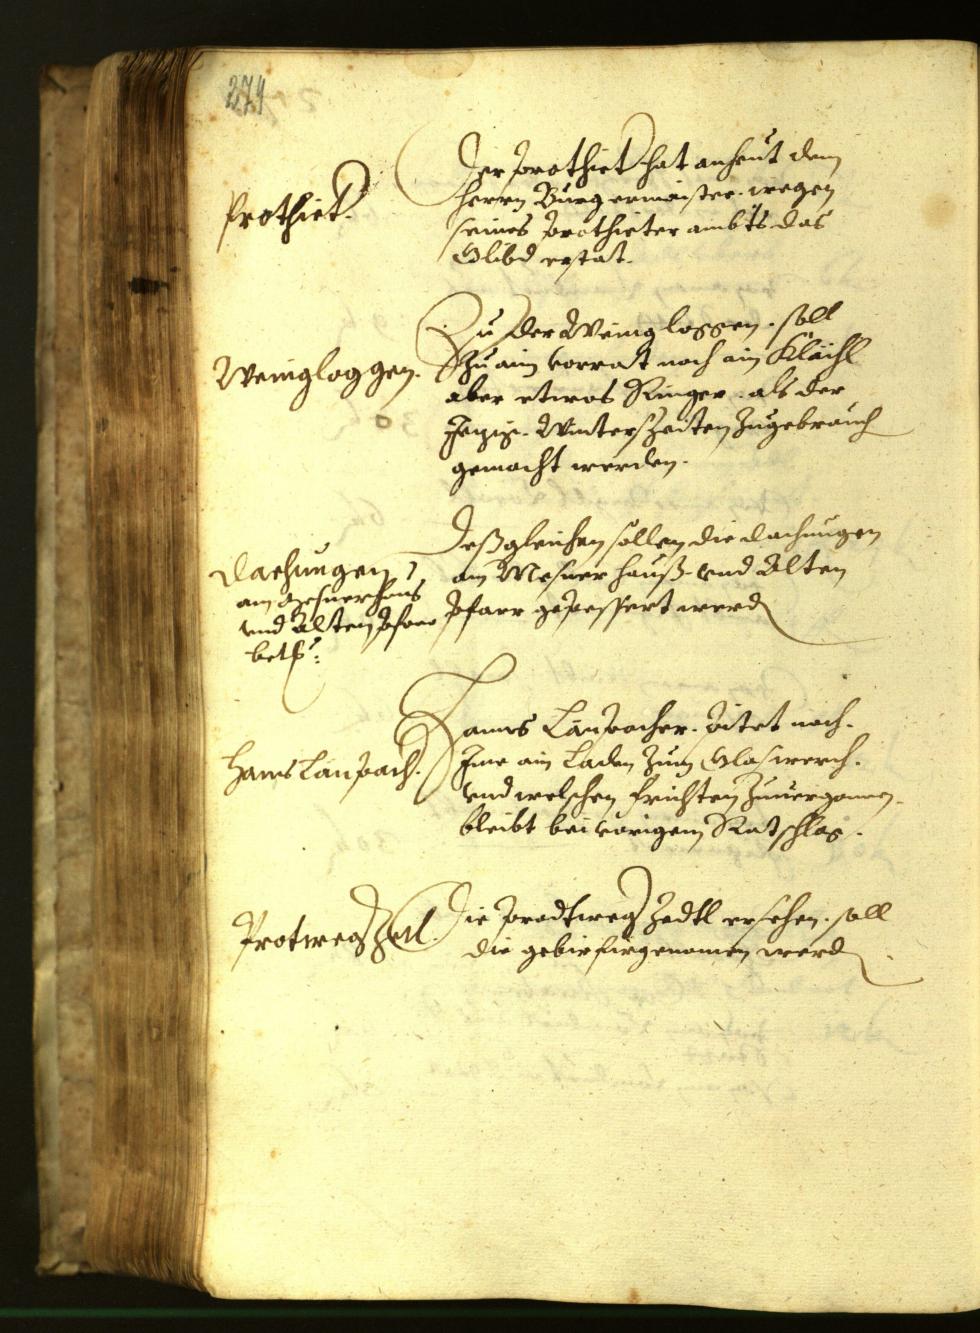 274
Prothiet.
Der Prothiet hat anheut dem
herrn Burgermaister wegen
seines Prothieter ambts das
Glibd erstat.
Weingloggen.
Zu der Weingloggen soll
Zu ain vorrat noch ain Klächl
aber etwas Ringer als der
Jezige Winterszeiten zugebrauch
gemacht werden.
Dachungen
am Mesnerhaus
und Alten Pfarr
betr:
Deßgleichen sollen die dachungen
am Mesner hauß und Alten
Pfarr gepessert werd
Hanns Lanpach.
Hanns Lanpacher pitet noch
Ime ain Laden zum Glaswerch
und welschen frichten zuuergonnen
bleibt bei vorigem Ratschlag.
Protwegzetl
Die Prodtweg Zedtl ersehen soll
die gebir firgenomen werd